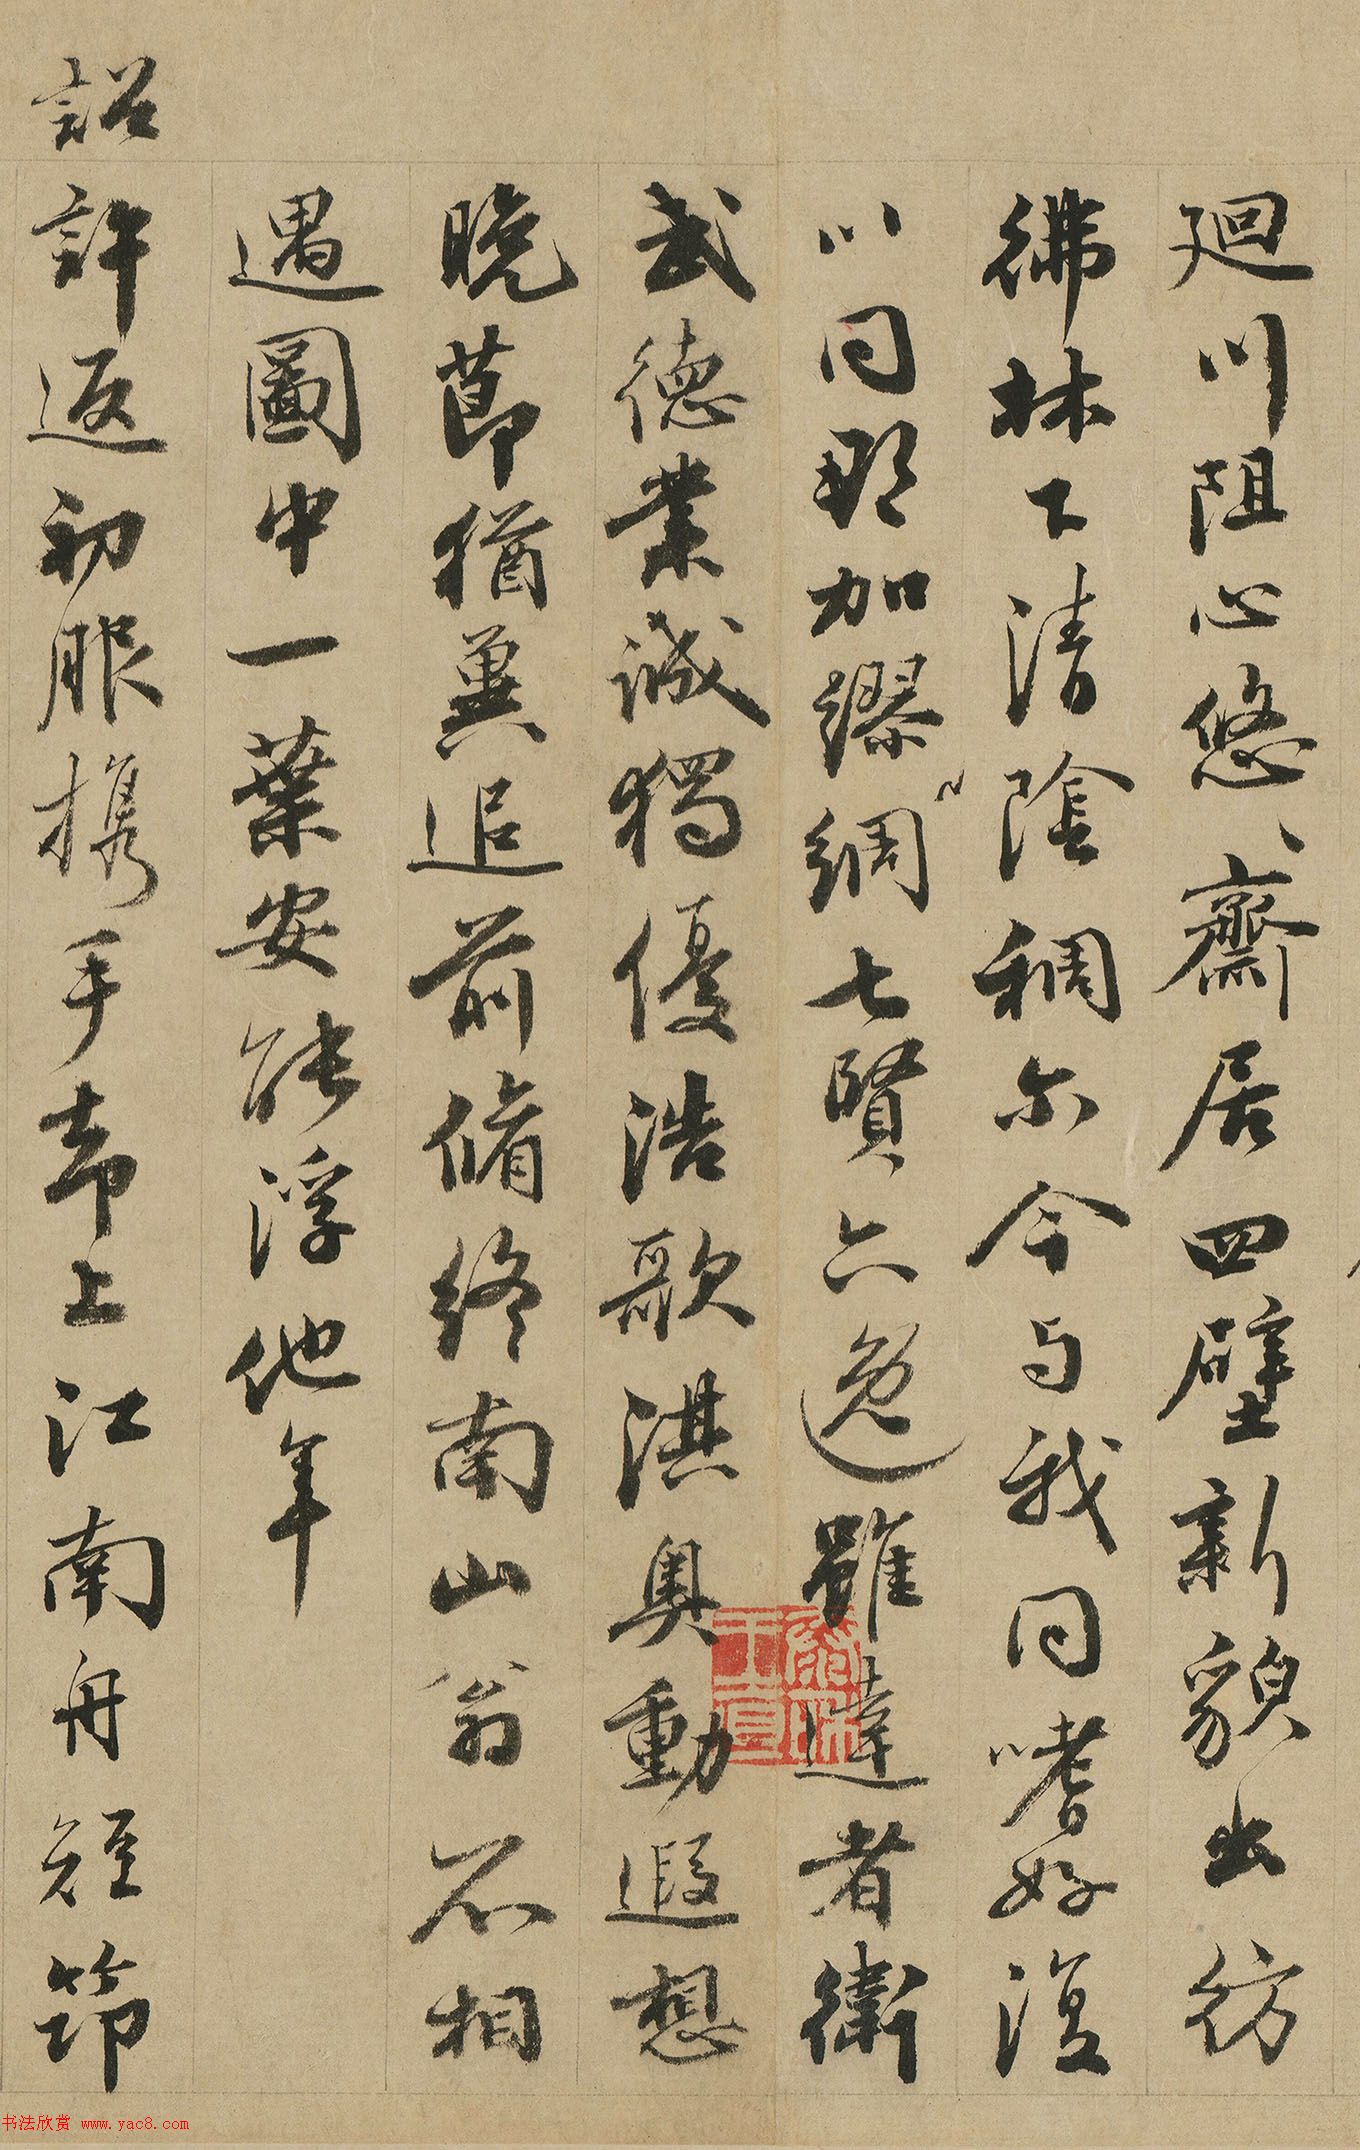 廻川阻心悠〻齋居四壁新貌出彷
彿林下清陰稠尓今与我同嗜好復
以同郡加繆〻綢七賢六逸雖達者衛
武德業誠獨優浩歌淇奥動遐想
晚節猶冀追前脩終南山翁不相
遇圖中一葉安能浮他年
詔許返初服攜手却上江南舟短笻
书法欣赏 www.yac8.com